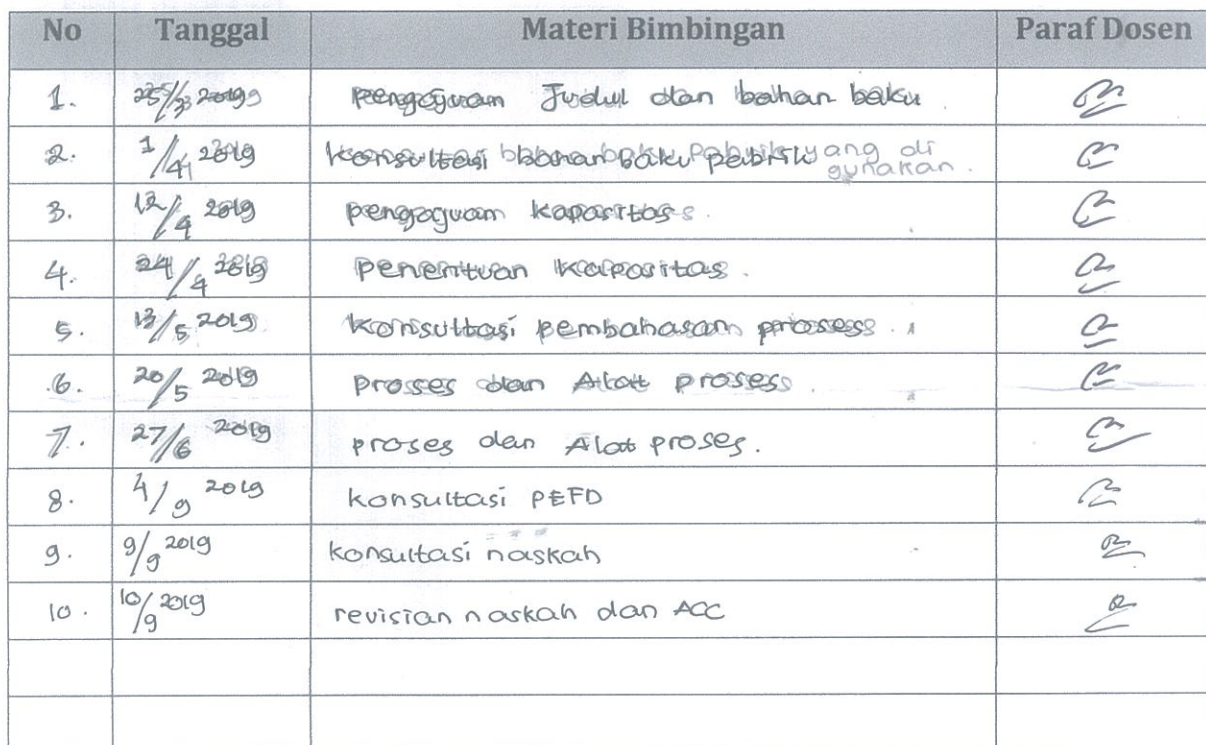 No Tanggal Materi Bimbingan Paraf Dosen
1. 25/3 2019 pengajuan Judul dan bahan baku
2. 1/4 2019 konsultasi bahan baku pabrik yang di
gunakan.
3. 12/4 2019 pengajuan kapasitas.
4. 24/4 2019 penentuan kapasitas.
5. 13/5 2019 konsultasi pembahasan proses.
6. 20/5 2019 proses dan Alat proses.
7. 27/6 2019 proses dan Alat proses.
8. 4/9 2019 konsultasi PEFD
9. 9/9 2019 konsultasi naskah
10. 10/9 2019 revisian naskah dan ACC